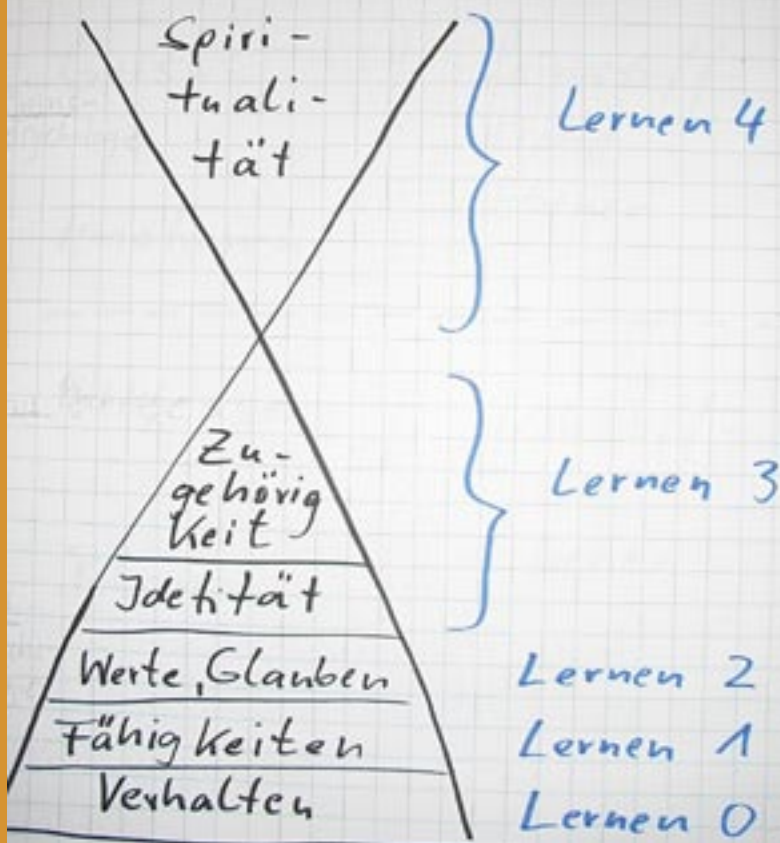 Spiri-
tuali-
tät
Lernen 4
Zu-
gehörig
keit
Lernen 3
Idetität
Werte, Glauben
Lernen 2
Fähigkeiten
Lernen 1
Verhalten
Lernen 0